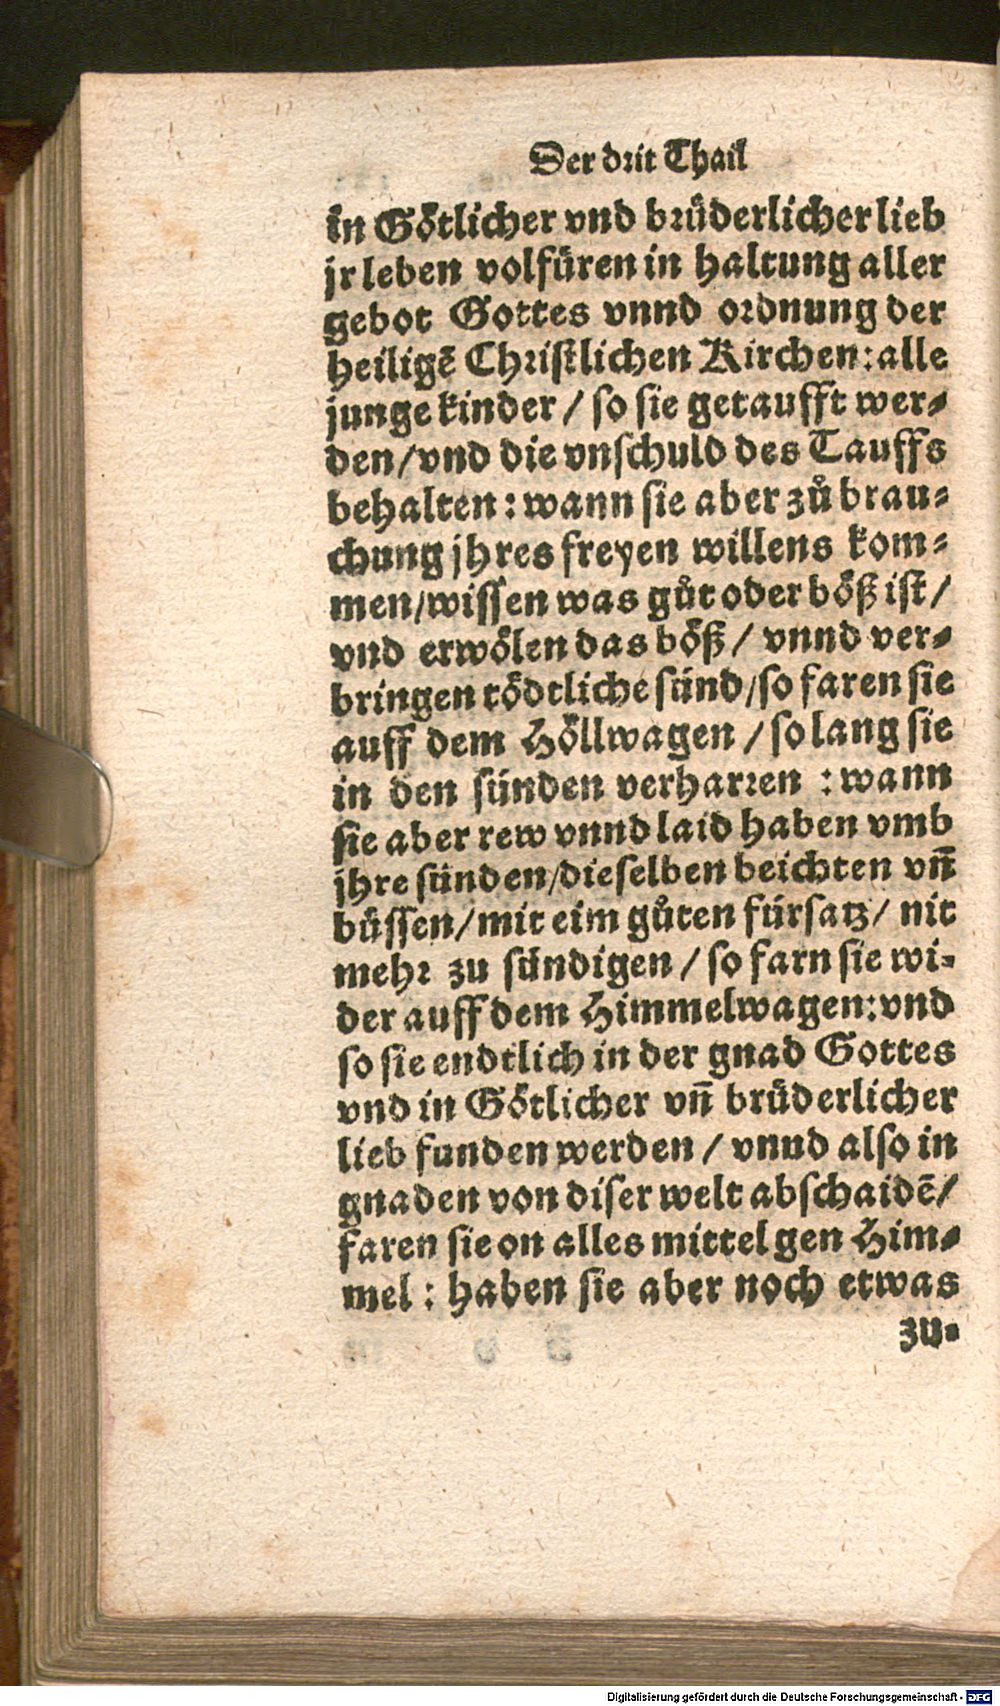 Der drit Thail
in Götlicher vnd brüderlicher lieb
jr leben volfüren in haltung aller
gebot Gottes vnnd ordnung der
heiligẽ Christlichen Kirchen: alle
junge kinder / so sie getaufft wer-
den / vnd die vnschuld des Tauffs
behalten: wann sie aber zů brau-
chung jhres freyen willens kom-
men / wissen was gůt oder böß ist /
vnd erwölen das böß / vnnd ver-
bringen tödtliche sünd / so faren sie
auff dem Höllwagen / so lang sie
in den sünden verharren : wann
sie aber rew vnnd laid haben vmb
jhre sünden / dieselben beichten vñ
büssen / mit eim gůten fürsatz / nit
mehr zu sündigen / so farn sie wi-
der auff dem Himmelwagen: vnd
so sie endtlich in der gnad Gottes
vnd in Götlicher vñ brüderlicher
lieb funden werden / vnnd also in
gnaden von diser welt abschaidẽ /
faren sie on alles mittel gen Him-
mel : haben sie aber noch etwas
zu-
Digitalisierung gefördert durch die Deutsche Forschungsgemeinschaft - DFG